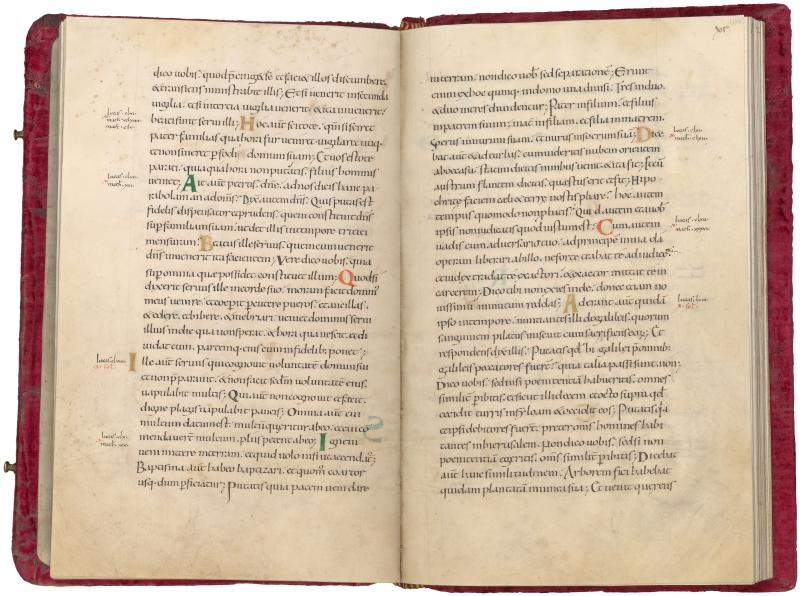 dico uobis. quod p̄cinget se et faciet illos discumbere.
et transiens ministrabit illis; Et si uenerit in secunda
uigilia. et si in tertia uigilia uenerit. et ita inuenerit.
beati sunt serui illi; Hoc aut̄ scitote. qm̄ si sciret
pater familias qua hora fur ueniret. uigilaret utiq;
et non sineret p̄fodi domum suam; Et uos estote
parati. quia qua hora non putatis. filius hominis
ueniet; Ait aut̄ petrus. dn̄e. ad nos dicis hanc pa
rabolam an ad om̄s; Dixit autem dn̄s. Quis putas est
fidelis dispensator et prudens. quem constituet dn̄s
sup familiam suam. ut det illis in tempore tritici
mensuram; Beatus ille seruus. quem cum uenerit
dn̄s inuenerit ita facientem; Vere dico uobis. quia
sup omnia que possidet constituet illum; Quodsi
dixerit seruus ille in corde suo. moram facit domin'
meus uenire. et coeperit p̄cutere pueros. et ancillas.
et edere. et bibere. et inebriari. ueniet dominus serui
illius in die qua non sperat. et hora qua nescit. et di
uidet eum. partemq; eius cum infidelib; ponet;
Ille aut̄ seruus qui cognouit uoluntatē domini sui
et non p̄parauit. et non facit scdm̄ uoluntatē eius.
uapulabit multis; Qui aut̄ non cognouit et fecit.
digne plagis uapulabit paucis; Omni aut̄ cui
multum datum est. multū queret' ab eo. et cui co
mendauert̄ multum. plus petent ab eo; Ignem
ueni mittere in terram. et quid uolo nisi ut accendat';
Baptisma aut̄ habeo baptizari. et quom̄ coartor
usq; dum p̄ficiatur; Putatis quia pacem ueni dare
in terram. non dico uob̄ sed separationē; Erunt
enim ex hoc quinq; in domo una diuisi. Tres in duo.
et duo in tres diuidentur; Pater in filium. et filius
in patrem suum. mat̄ in filiam. et filia in matrem.
Socrus in nurum suam. et nurus in socrum suā; Dice
bat aut̄ et ad turbas; cum uideritis nubem orientem
ab occasu. statim dicitis nimbus uenit. et ita fit; Et cū
austrum flantem dicitis. quia estus erit et fit; Hipo
critę faciem cęli et terrę nostis p̄bare. hoc autem
tempus quomodo non p̄batis; Quid autem et a uob̄
ipsis non iudicatis quod iustum est; Cum autem
uadis cum aduersario tuo. ad principē in uia da
operam liberari ab illo. ne forte trahat te ad iudicē.
et iudex tradat te exactori. et exactor mittat te in
carcerem; Dico tibi non exies inde. donec etiam no
uissimū minutum reddas; Aderant aut̄ quidā
ipso in tempore. nuntiantes illi de galileis. quorum
sanguinem pilatus miscuit cum sacrificiis eorū; Et
respondens dixit illis; Putatis qd̄ hi galilei p̄ omnib;
galileis peccatores fuert̄. quia talia passi sunt. non;
Dico uobis. sed nisi poenitentiā habueritis. omnes
similit̄ p̄ibitis; sicut illi decem et octo supra qd̄
cecidit turris in syloam et occidit eos; Putatis q̄a
et ipsi debitores fuert̄. preter om̄s homines habi
tantes in hierusalem. Non dico uobis. sed si non
poenitentiā egeritis. om̄s similit̄ p̄ibitis; Dicebat
aut̄ hanc similitudinem. Arborem fici habebat
quidam plantatā in uinea sua; Et uenit querens